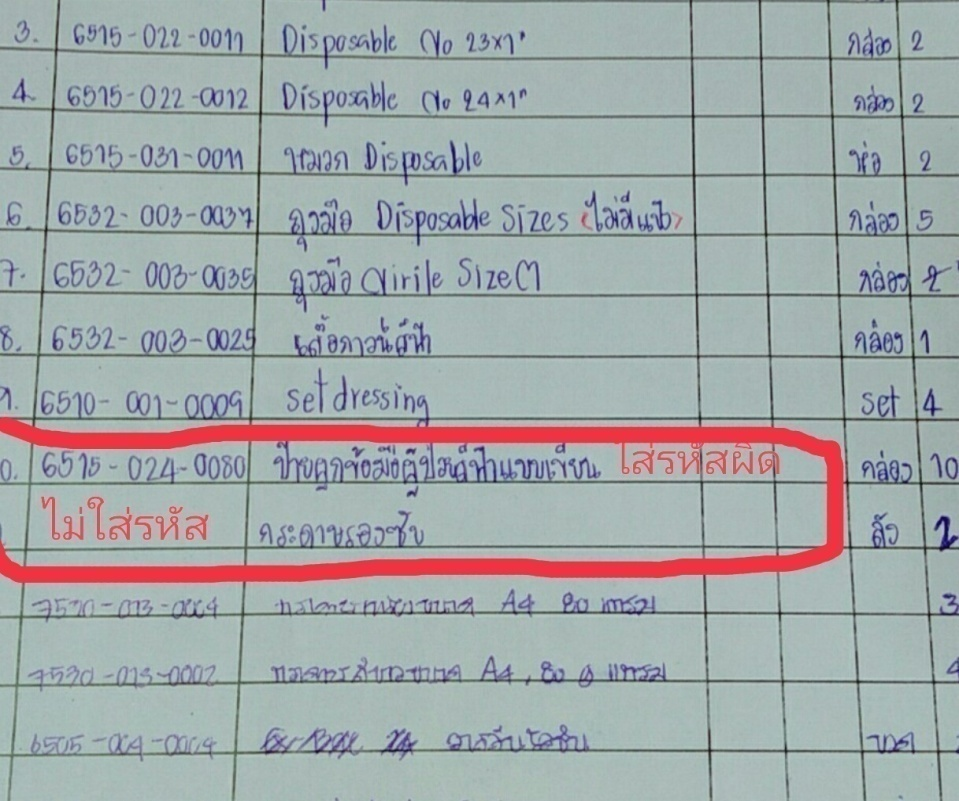 3. 6515-022-0011 Disposable No 23x1" กล่อง 2
4. 6515-022-0012 Disposable No 24x1" กล่อง 2
5. 6515-031-0011 หมวก Disposable ห่อ 2
6. 6532-003-0037 ถุงมือ Disposable Size S (ไม่มีแป้ง) กล่อง 5
7. 6532-003-0035 ถุงมือ Size M กล่อง 2
8. 6532-003-0025 เสื้อกาวน์สีฟ้า กล่อง 1
9. 6510-001-0009 set dressing set 4
0. 6515-024-0080 ป้ายผูกข้อมือผู้ป่วยสีฟ้าแบบเขียน ใส่รหัสผิด กล่อง 10
ไม่ใส่รหัส กระดาษรองซับ ลัง 2
7530-013-0004 A4 80 แกรม 3
7530-013-0002 A4, 80 แกรม 4
6505-004-0004 ขวด